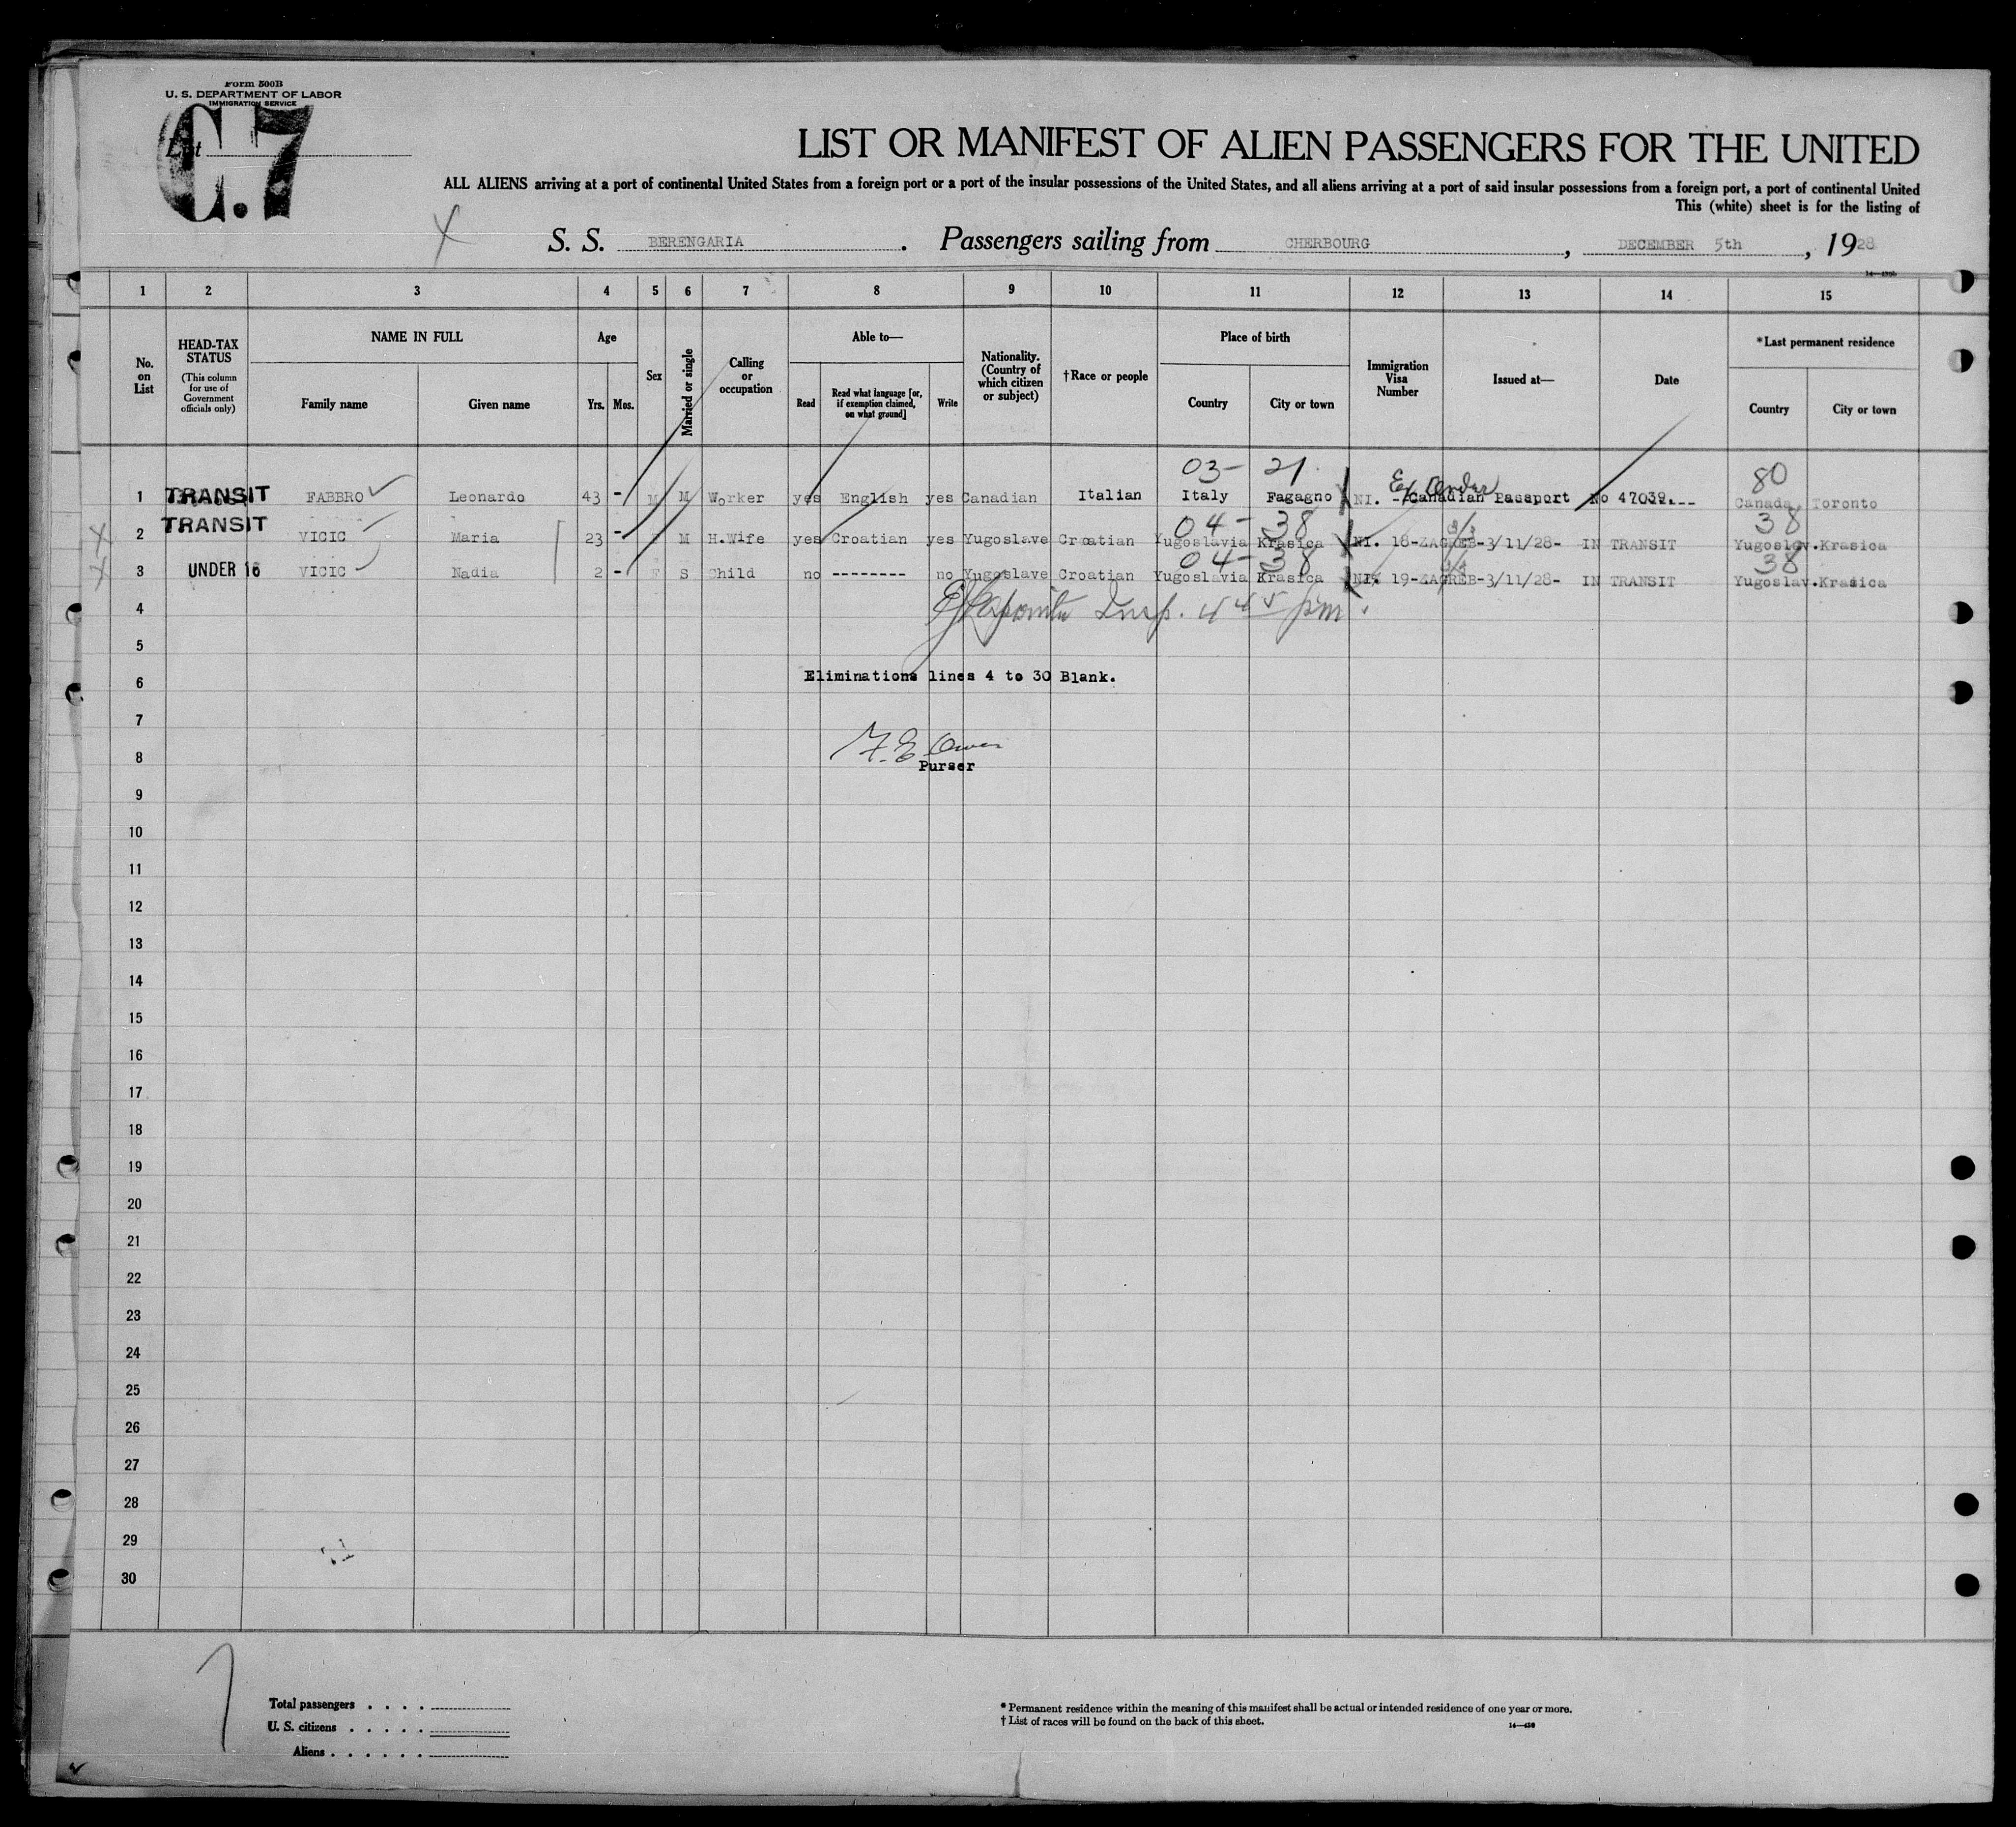 Form 500B
U. S. DEPARTMENT OF LABOR
IMMIGRATION SERVICE
List
C.7
LIST OR MANIFEST OF ALIEN PASSENGERS FOR THE UNITED
ALL ALIENS arriving at a port of continental United States from a foreign port or a port of the insular possessions of the United States, and all aliens arriving at a port of said insular possessions from a foreign port, a port of continental United
This (white) sheet is for the listing of
S. S. BERENGARIA. Passengers sailing from CHERBOURG, DECEMBER 5th, 1928
1 2 3 4 5 6 7 8 9 10 11 12 13 14 15
No. on List
HEAD-TAX STATUS (This column for use of Government officials only)
NAME IN FULL
Family name Given name
Age
Yrs. Mos.
Sex
Married or single
Calling or occupation
Able to—
Read
Read what language [or, if exemption claimed, on what ground]
Write
Nationality. (Country of which citizen or subject)
†Race or people
Place of birth
Country City or town
Immigration Visa Number
Issued at—
Date
*Last permanent residence
Country City or town
03- 21. Ex Order 80
1 TRANSIT FABBRO Leonardo 43 - M M Worker yes English yes Canadian Italian Italy Fagagno NI. - Canadian Passport No 47039.--- Canada Toronto
04- 38 38
2 TRANSIT VICIC Maria 23 - F M H.Wife yes Croatian yes Yugoslave Croatian Yugoslavia Krasica NI. 18-ZAGREB-3/11/28- IN TRANSIT Yugoslav.Krasica
04- 38 38
3 UNDER 16 VICIC Nadia 2 - F S Child no -------- no Yugoslave Croatian Yugoslavia Krasica NI. 19-ZAGREB-3/11/28- IN TRANSIT Yugoslav.Krasica
4 Insp. 4 45 pm.
5
6 Eliminations lines 4 to 30 Blank.
7
8 F. E. Owen
Purser
9
10
11
12
13
14
15
16
17
18
19
20
21
22
23
24
25
26
27
28
29
30
Total passengers . . . .
U. S. citizens . . . . .
Aliens . . . . . .
* Permanent residence within the meaning of this manifest shall be actual or intended residence of one year or more.
† List of races will be found on the back of this sheet.